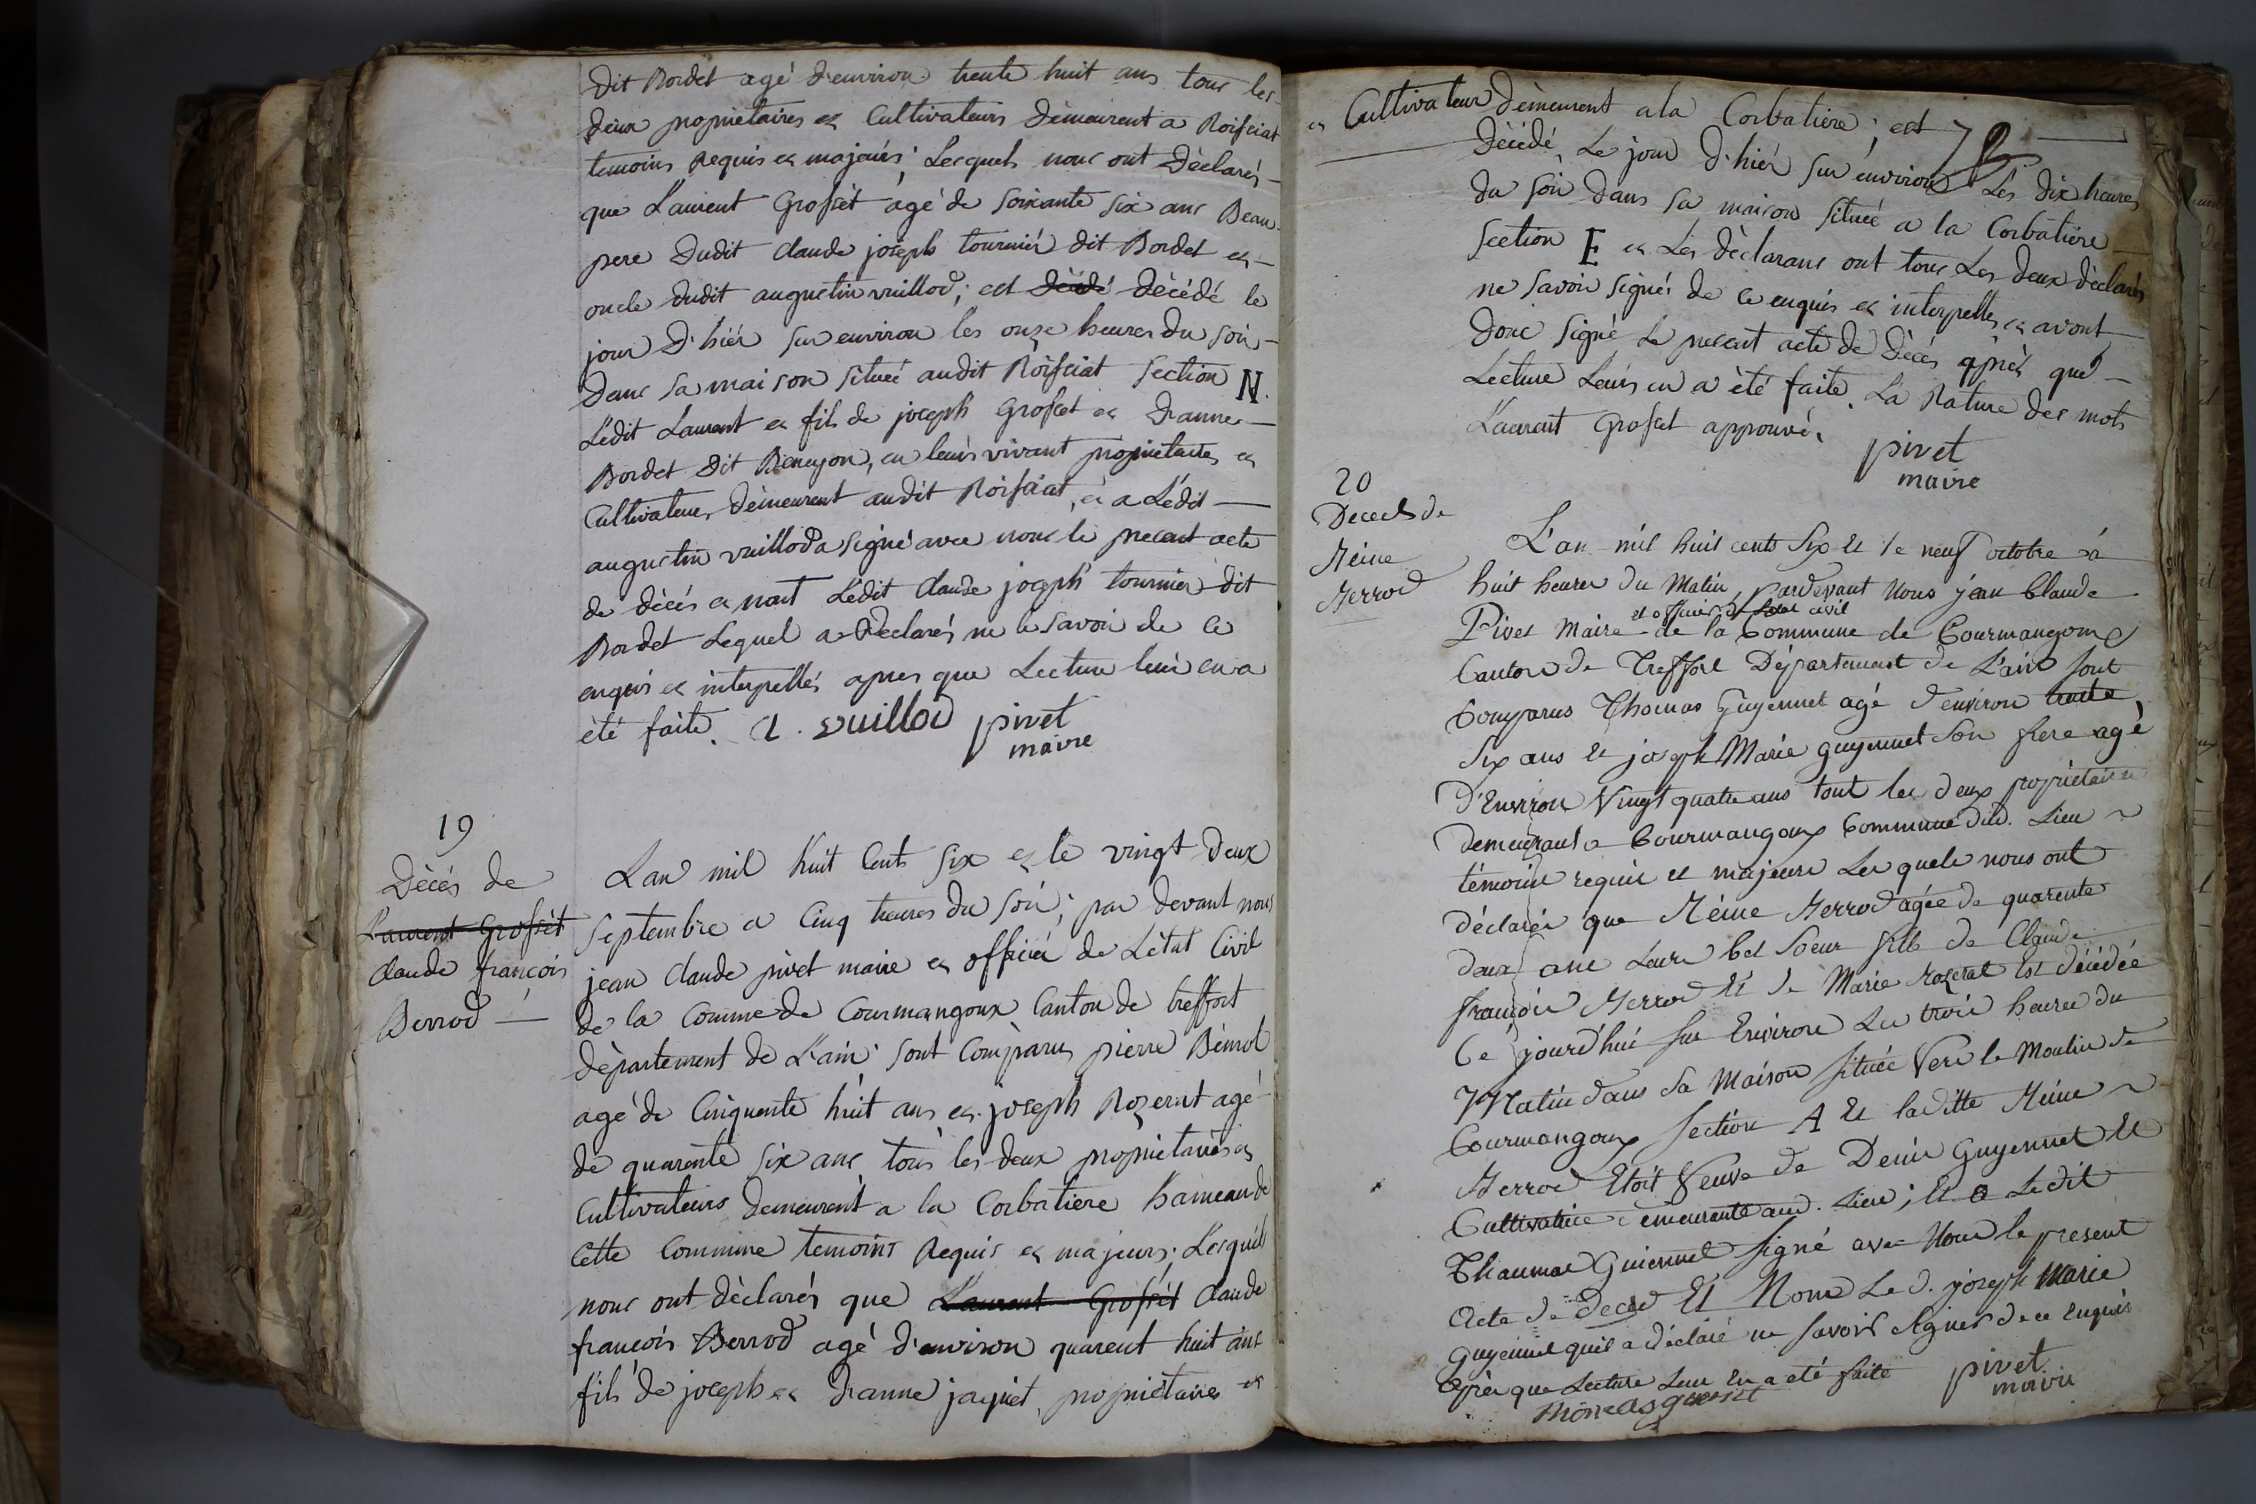 dit Bordet agé d'environ trente huit ans tous les
deux propriétaires et Cultivateurs demeurent a Roissiat
temoins Requis et majeurs; Lesquels nous ont déclarés
que Laurent Grosset agé de soixante six ans Beau
pere dudit claude joseph tournier dit Bordet et
oncle dudit augustin vuillod; est décédé décédé le
jour d'hiér sur environ les onze heures du soir
dans sa maison située audit Roissiat section N.
Ledit Laurent et fils de joseph Grosset et d'anne
Bordet dit Benoyon, en leurs vivant propriétaires et
Cultivateurs demeurent audit Roissiat, et a Ledit
augustin vuillod a signé avec nous le present acte
de décés et nont Ledit claude joseph tournier dit
Bordet Lequel a déclarés ne le savoir de ce
enquis et interpellés apres que Lecture leur en a
été faite. A. vuillod pivet
maire
19
Décés de
Laurent Grosset
claude françois
Berrod
Lan mil huit Cents six et le vingt deux
septembre a Cinq heures du soir; par devant nous
jean claude pivet maire et officier de Létat Civil
de la Comme de Courmangoux Canton de treffort
département de L'ain; sont Comparus pierre Bémol
agé de Cinquante huit ans et joseph Rozerat agé
de quarente six ans tous les deux propriétaires et
Cultivateurs demeurent a la Corbatiere hameau de
Cette Commune temoins Requis et majeurs; Lesquels
nous ont déclarés que Laurent Grosset claude
françois Berrod agé d'environ quarent huit ans
fils de joseph et d'anne jaquet, propriétaires et
et Cultivateur demeurent a la Corbatiere; est
décédé Le jour d'hiér sur environ Les dix heures
du soir dans sa maison située a la Corbatiere
section E et Les déclarans ont tous Les deux déclarés
ne savoir signér de ce enquis et interpellés et avont
donc signé Le present acte de décés après que
Lecture Leurs en a été faite. La Rature des mots
Laurent Grosset approuvée.
pivet
maire
20
Deceds de
Méine
Merrod
L'an mil huit cents Six et le neuf octobre à
huit heures du Matin, Pardevant Nous jean Claude
et officier de L'état civil
Pivet Maire de la Commune de Courmangoux
Canton de Treffort Département de L'ain sont
Comparus Thomas Guyennet agé d'environ trente
Six ans et joseph Marie guyennet Son frere agé
D'Environ Vingt quatre ans tout les deux propriétaires
demeurant a Courmangoux Commune dud. Lieu
témoins requis et majeurs Les quels nous ont
déclarés que Méine Merrod agée de quarente
deux ans Leurs bel Soeur fille de Claude
françois Merrod et de Marie rozerat est décédée
Ce jourd'hui sur Environ Les trois heures du
Matin dans Sa Maison Située Vers le Moulin de
Courmangoux Section A Et laditte Méine
Merrod Etoit Veuve de Denis Guyennet Et
Cultivatrice demeurante aud. Lieu; Et a Ledit
Thaumas Guiennet Signé avec Nous le present
Acte de Deced Et Nom Led. joseph Marie
Guyennet quil a déclaré ne savoir Signer de ce Enquis
Après que Lecture Leur En a été faite pivet
maire